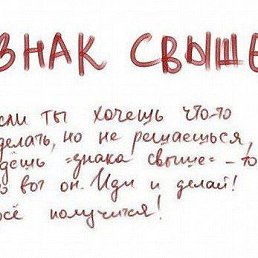 ЗНАК СВЫШЕ
сли ты хочешь что-то
делать, но не решаешься,
дёшь "знака свыше" – то
о вот он. Иди и делай!
сё получится!